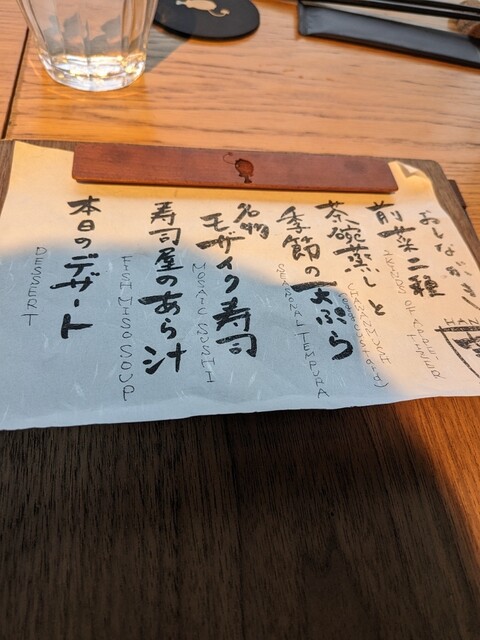 おしながき
前菜二種
2 KINDS OF
茶碗蒸しと
季節の天ぷら
SEASONAL TEMPURA
名物
モザイク寿司
MOSAIC SUSHI
寿司屋のあら汁
FISH MISO SOUP
本日のデザート
DESSERT